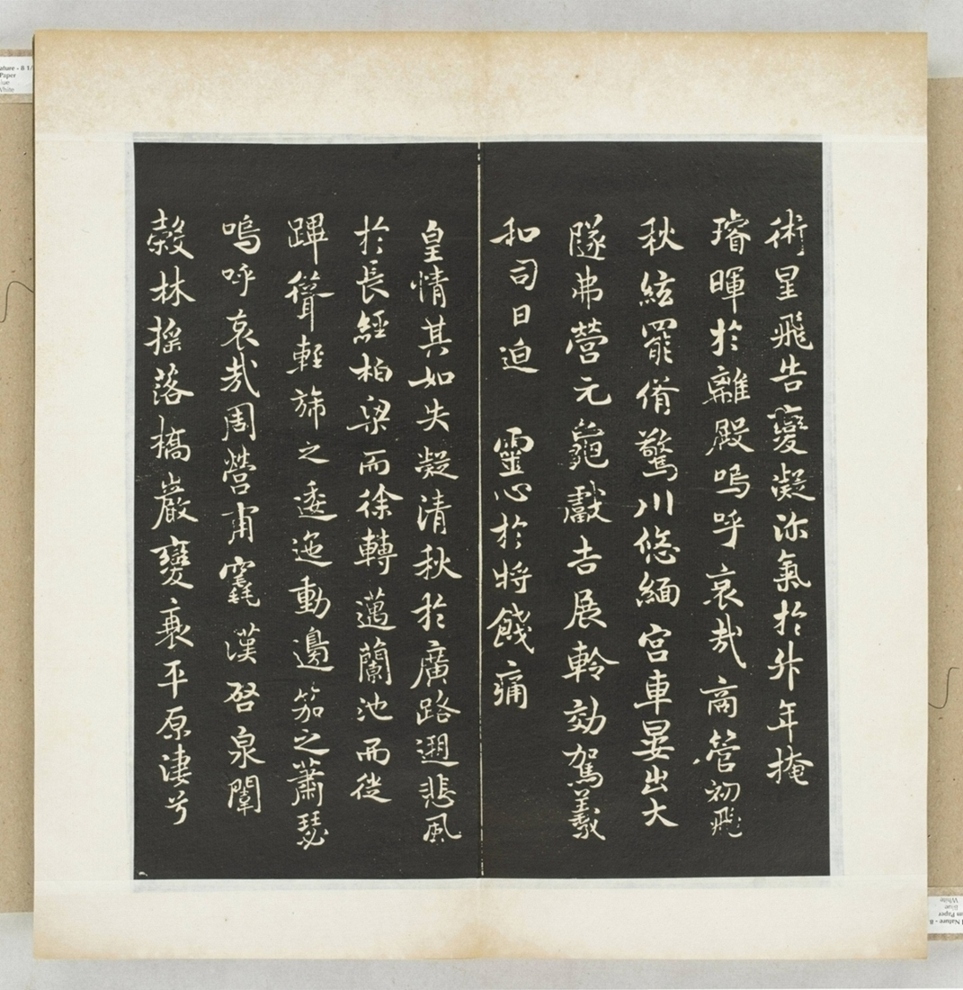 術星飛告變凝沵氣於外年掩
璿暉於離殿嗚呼哀哉商管初飛
秋絃罷脩驚川悠緬宮車晏出大
隧弗營元龜獻吉展軨効駕羲
和司日迫 靈心於將餞痛
皇情其如失凝清秋於廣路遡悲風
於長經栢梁而徐轉邁蘭池而從
蹕聳輕旆之逶迤動邊笳之蕭瑟
嗚呼哀哉周營甫竁漢啓泉闈
穀林搖落橋巖變衰平原淒兮